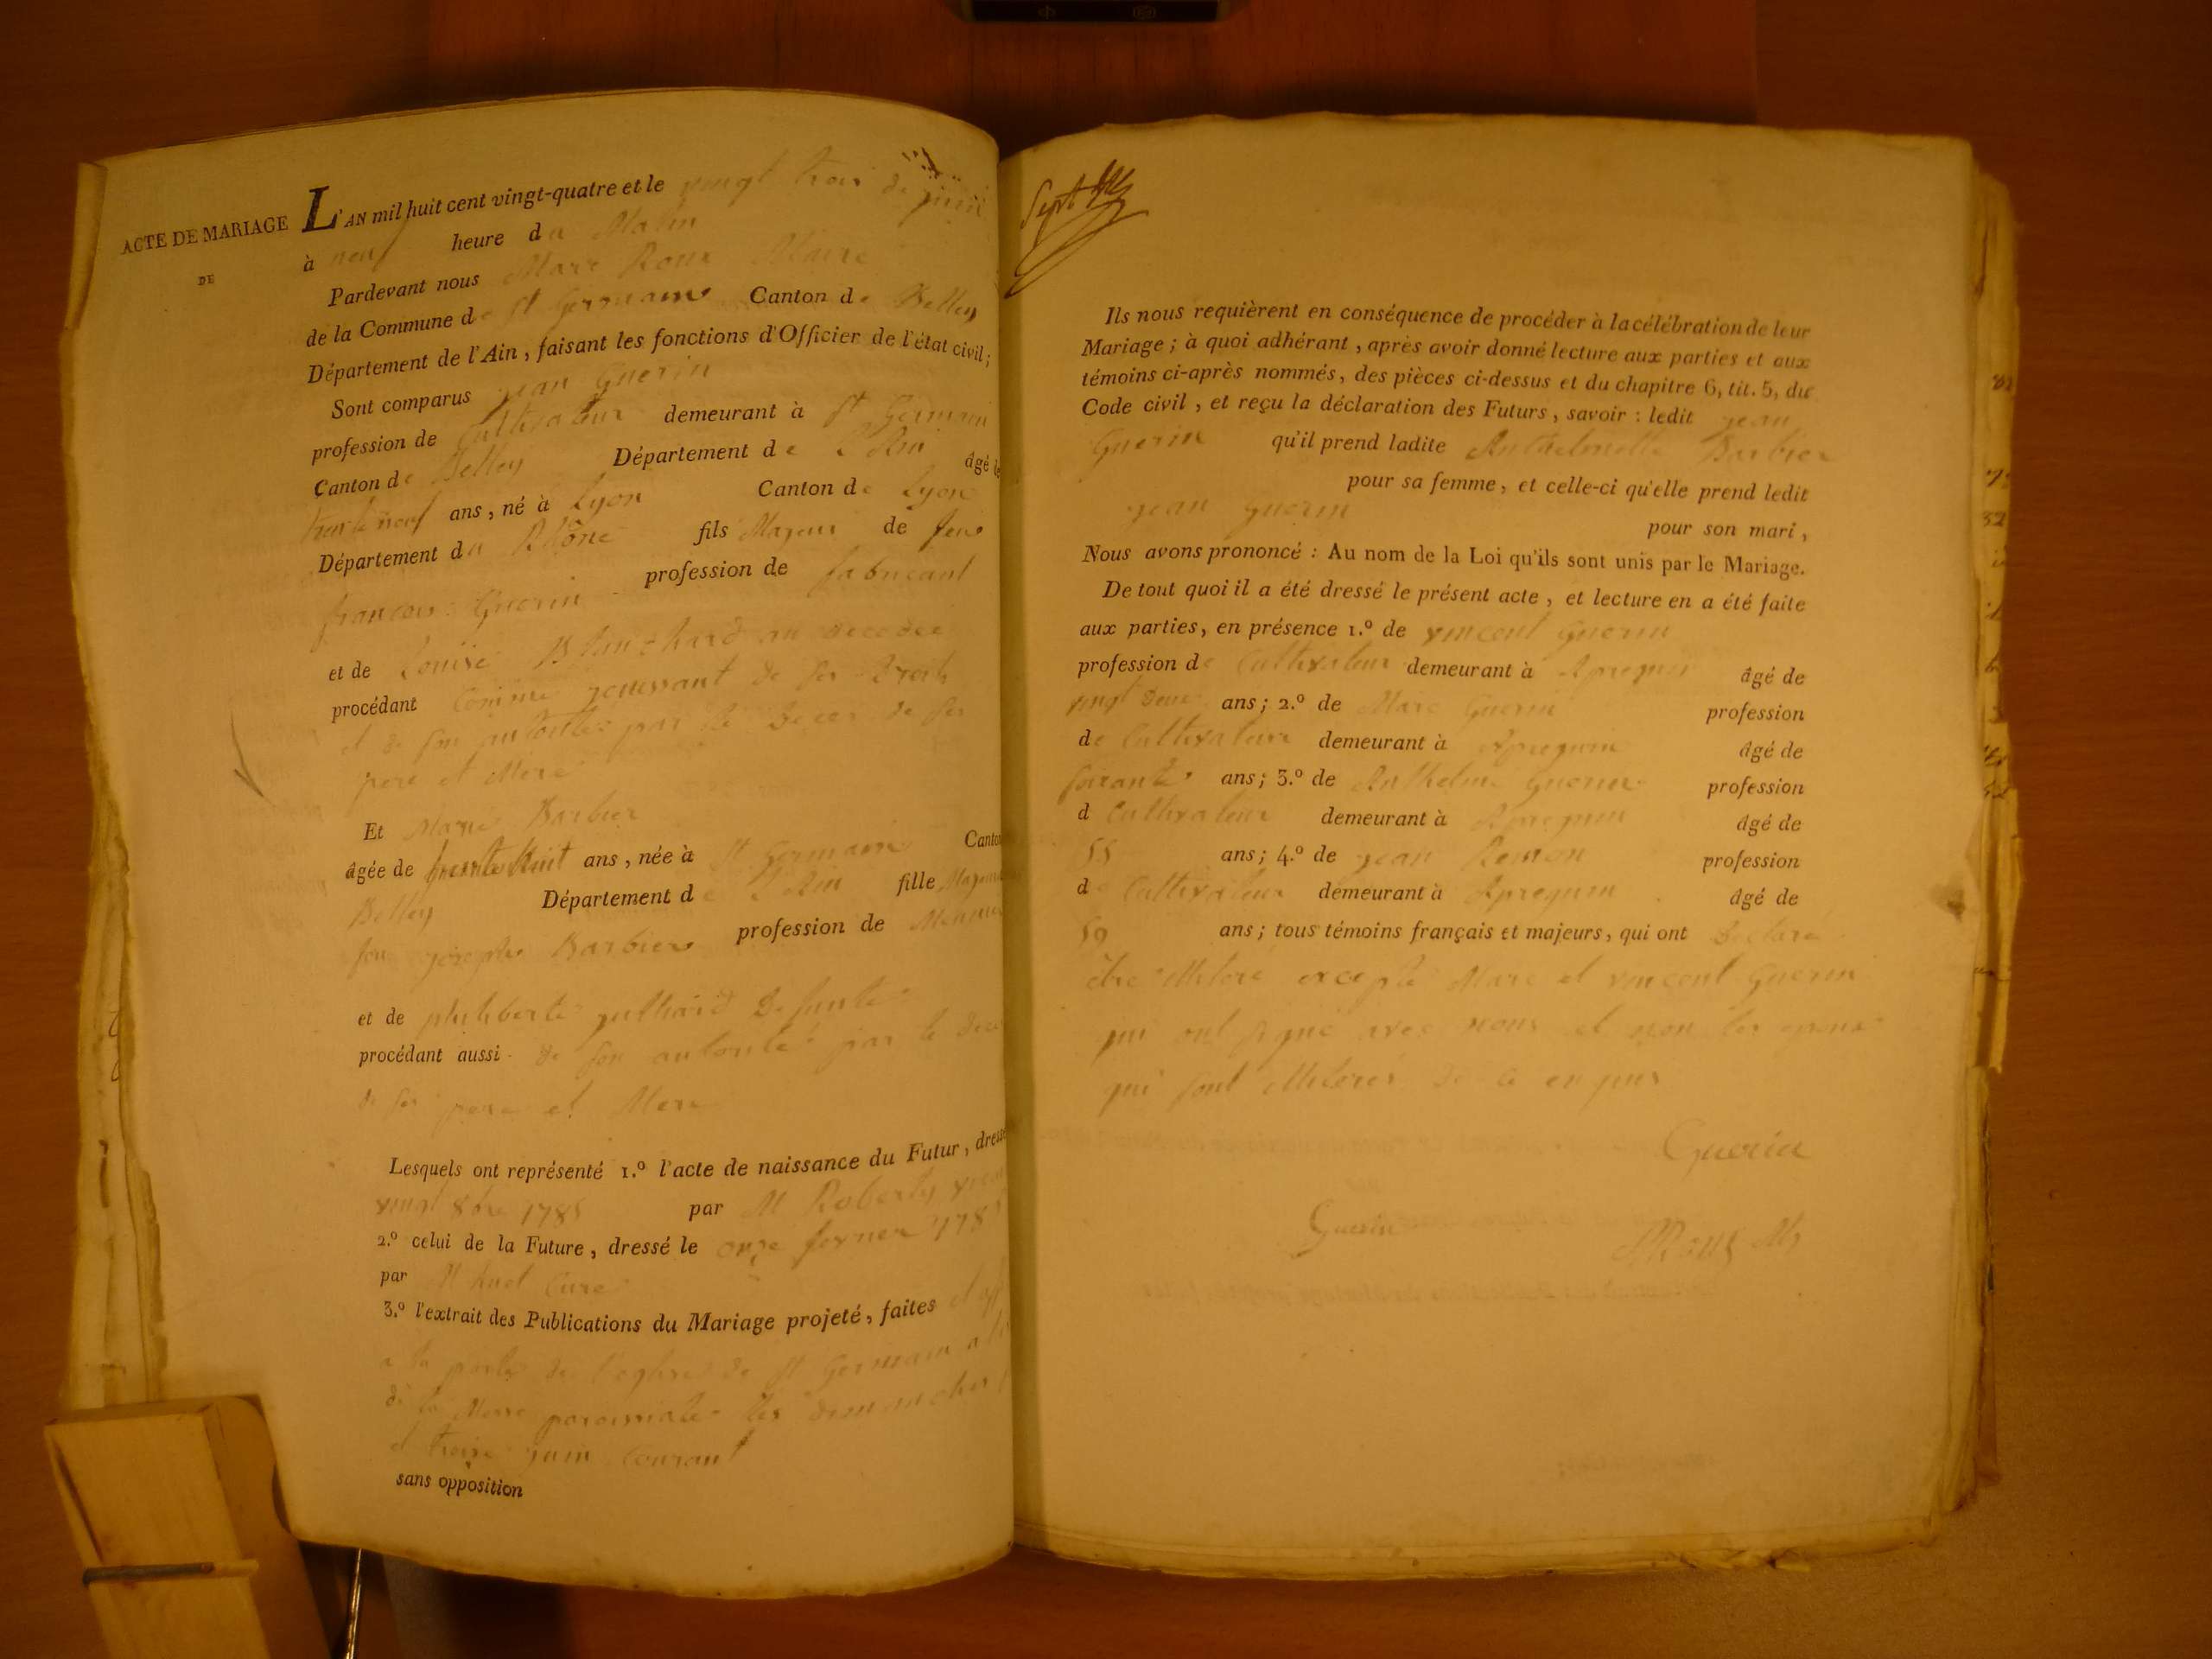 ACTE DE MARIAGE
DE
L'AN mil huit cent vingt-quatre et le vingt trois de juin
à neuf heure du Matin
Pardevant nous Marc Roux Maire
de la Commune de St Germain Canton de Belley
Département de l'Ain, faisant les fonctions d'Officier de l'état civil;
Sont comparus jean Guerin
profession de Cultivateur demeurant à St Germain
Canton de Belley Département de l'Ain âgé de
trente neuf ans, né à Lyon Canton de Lyon
Département du Rhône fils Majeur de feu
francois Guerin profession de fabricant
et de Louise Blanchard
procédant Comme jouissant de ses Droits
et de son autorité par le Deces de ses
pere et Mere
Et Marie Barbier
âgée de trente huit ans, née à St Germain Canton
Belley Département de l'Ain fille Majeure
feu joseph Barbier profession de
et de philiberte Defunte
procédant aussi de son autorité par le Deces
de ses pere et Mere
Lesquels ont représenté 1.º l'acte de naissance du Futur, dressé
vingt 8bre 1785 par M Roberty
2.º celui de la Future, dressé le onze fevrier 178
par M huet Curé
3.º l'extrait des Publications du Mariage projeté, faites et
a la porte de l'eglise de St Germain a
de la Messe paroissiale les dimanches
et treize juin Courant
sans opposition
Ils nous requièrent en conséquence de procéder à la célébration de leur
Mariage; à quoi adhérant, après avoir donné lecture aux parties et aux
témoins ci-après nommés, des pièces ci-dessus et du chapitre 6, tit. 5, du
Code civil, et reçu la déclaration des Futurs, savoir : ledit jean
Guerin qu'il prend ladite Anthelmette Barbier
pour sa femme, et celle-ci qu'elle prend ledit
jean guerin pour son mari,
Nous avons prononcé : Au nom de la Loi qu'ils sont unis par le Mariage.
De tout quoi il a été dressé le présent acte, et lecture en a été faite
aux parties, en présence 1.º de vincent Guerin
profession de Cultivateur demeurant à Apregnin âgé de
vingt deux ans; 2.º de Marc Guerin profession
de Cultivateur demeurant à Apregnin âgé de
soixante ans; 3.º de Anthelme Guerin profession
d Cultivateur demeurant à Apregnin âgé de
55 ans; 4.º de jean Remon profession
de Cultivateur demeurant à Apregnin âgé de
59 ans; tous témoins français et majeurs, qui ont Declaré
être illitere excepté Marc et vincent Guerin
qui ont signé avec nous et non les epoux
qui sont illiterés de ce enquis
Guerin
Guerin
MRoux